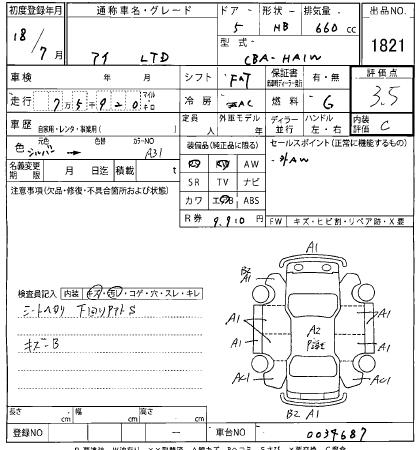 初度登録年月 通称車名・グレード ドア・形状・排気量 出品NO.
18/7月 アイ LTD 5 HB 660cc 1821
型式 CBA-HA1W
車検 年 月 シフト FAT 保証書 有・無 評価点
走行 75920 マイル キロ 冷房 AC 燃料 G 3.5
車歴 自家用・レンタ・事業用( ) 定員 人 外車モデル 年 ディーラー 並行 ハンドル 左・右 内装評価 C
色 元色 シルバー 色替 カラーNO A31 装備品(純正品に限る) セールスポイント(正常に機能するもの)
名義変更期限 月 日迄 積載量 t AW
・社外AW
注意事項(欠品・修復・不具合箇所および状態) SR TV ナビ
カワ エアB ABS
R券 9,910円 FW キズ・ヒビ割・リペア跡・X要
検査員記入 内装 キズ・汚レ・コゲ・穴・スレ・キレ
シートヘタリ 下回りサビS
キズ-B
A1
B2 A1
A1 A1 A2 A1 A1
AC1 AC1
B2 A1
長さ cm 幅 cm 高さ cm
登録NO ー 車台NO 0034687